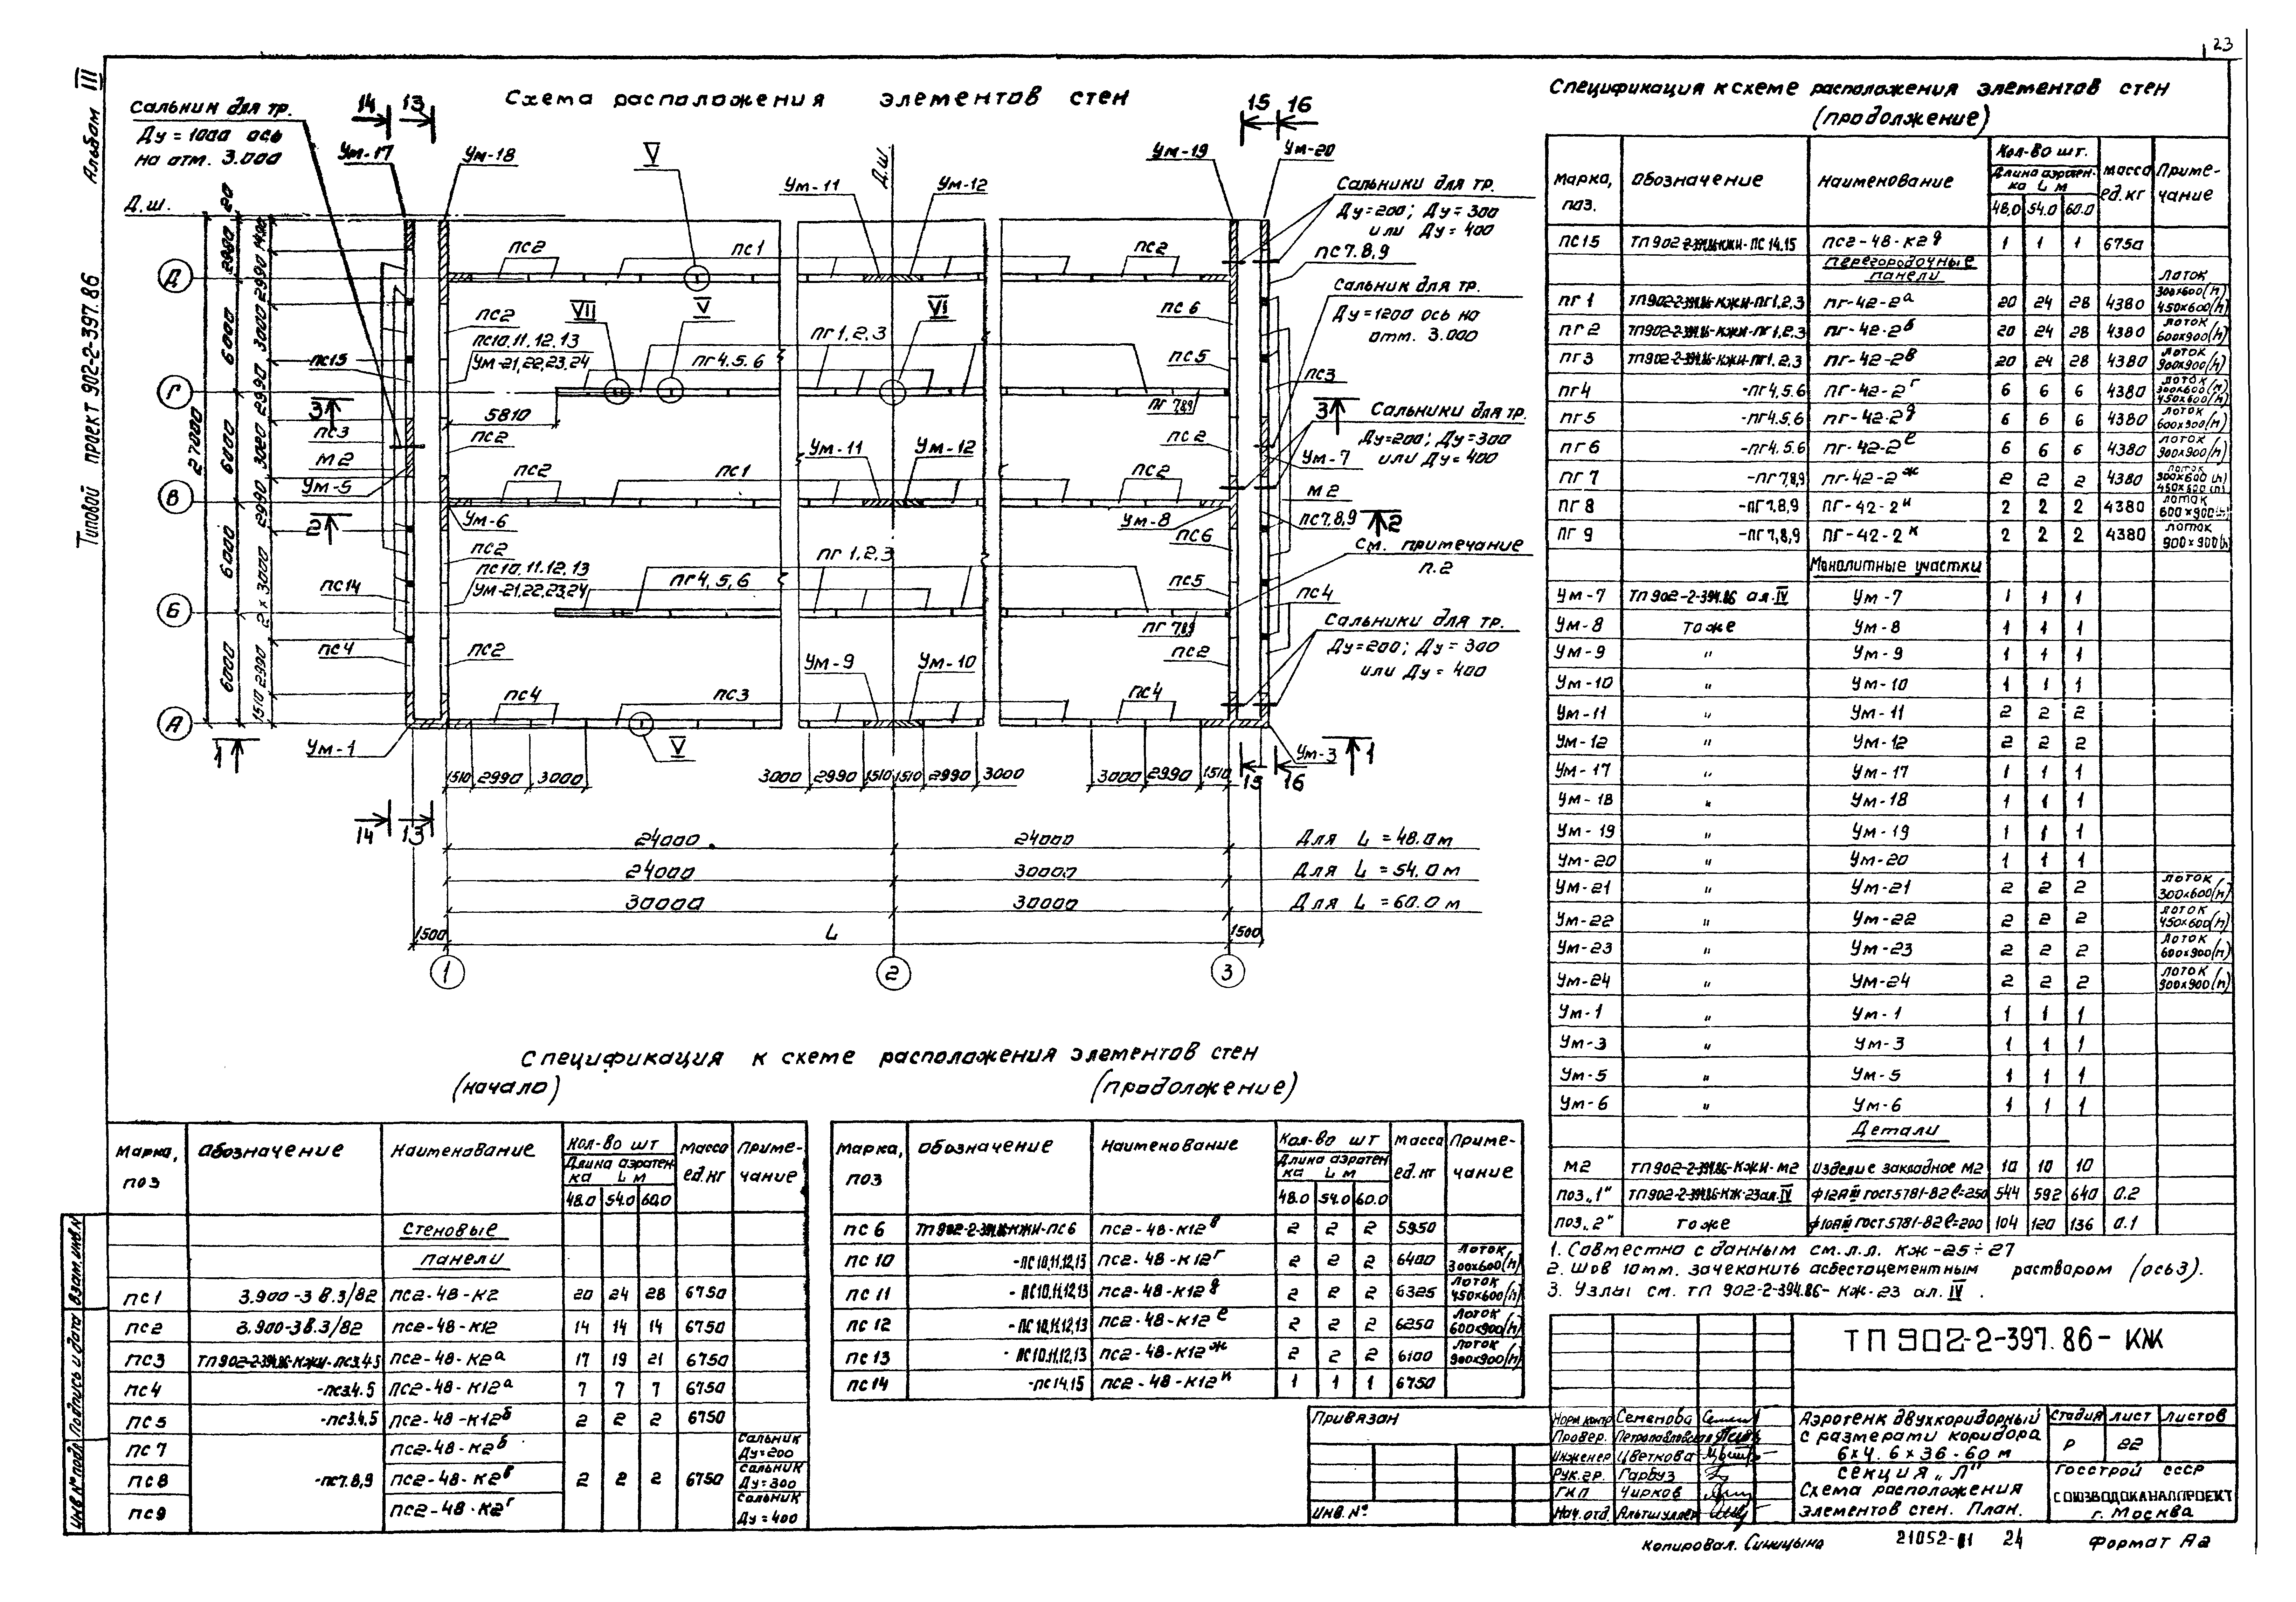 23
Альбом III
Типовой проект 902-2-397.86
Схема расположения элементов стен
Сальник для тр.
Ду = 1000 ось
на отм. 3.000
14 13
15 16
Ум-17
Ум-18
V
Д.ш.
Ум-11
Ум-12
Ум-19
Ум-20
Д.ш.
Сальники для тр.
Ду=200; Ду=300
или Ду=400
пс2
пс1
пс2
пс7.8,9
Д
Сальник для тр.
Ду=1200 ось на
отм. 3.000
пс2
VII
V
VI
пс6
пс10,11.12,13
Ум-21,22,23,24
пг4.5.6
пг1,2,3
пс15
пс5
пс3
Г
5810
пг 7,8,9
3
3
Сальники для тр.
Ду=200; Ду=300
или Ду=400
пс3
пс2
пс2
м2
Ум-5
пс2
пс1
Ум-11
Ум-12
пс2
Ум-7
В
м2
Ум-6
Ум-8
пс7,8,9
2
2
пс6
См. примечание
п.2
пс2
пг 1,2,3
пс10,11.12,13
Ум-21,22,23,24
пг4,5,6
пс14
пс5
пс4
Б
пг 7,8,9
Сальники для тр.
Ду=200; Ду=300
или Ду=400
пс4
пс2
пс2
Ум-9
Ум-10
пс4
пс3
пс4
А
Ум-1
V
Ум-3
1
1
27000
6000 6000 6000 6000 2990 20
1510 2990 2×3000 2990 3000 2990 3000 2990 1490
1510 2990 3000
3000 2990 1510 1510 2990 3000
3000 2990 1510
15 16
14 13
24000 24000 Для L = 48.0м
24000 30000 Для L = 54.0м
30000 30000 Для L = 60.0м
1500 L 1500
1 2 3
Спецификация к схеме расположения элементов стен
(начало)
Марка, поз
Обозначение
Наименование
Кол-во шт
Длина аэротенка L м
48.0 54.0 60.0
Масса ед.кг
Примечание
Стеновые
панели
пс1 3.900-3 в.3/82 пс2-48-к2 20 24 28 6750
пс2 3.900-3в.3/82 пс2-48-к12 14 14 14 6750
пс3 ТП902-2-394.86-КЖИ-пс3.4.5 пс2-48-к2а 17 19 21 6750
пс4 -пс3.4.5 пс2-48-к12а 7 7 7 6750
пс5 -пс3.4.5 пс2-48-к12б 2 2 2 6750
пс7 пс2-48-к2б сальник Ду=200
пс8 -пс7.8,9 пс2-48-к2в 2 2 2 6750 сальник Ду=300
пс9 пс2-48-к2г сальник Ду=400
(продолжение)
Марка, поз
Обозначение
Наименование
Кол-во шт
Длина аэротенка L м
48.0 54.0 60.0
Масса ед.кг
Примечание
пс 6 ТП902-2-394.86-КЖИ-пс6 пс2-48-к12в 2 2 2 5950
пс 10 -ПС10,11,12,13 пс2-48-к12г 2 2 2 6400 лоток 300х600(h)
пс 11 -ПС10,11,12,13 пс2-48-к12д 2 2 2 6325 лоток 450х600(h)
пс 12 -ПС10,11,12,13 пс2-48-к12е 2 2 2 6250 лоток 600х900(h)
пс 13 -ПС10,11,12,13 пс2-48-к12ж 2 2 2 6100 лоток 900х900(h)
пс14 -пс14,15 пс2-48-к12и 1 1 1 6750
Спецификация к схеме расположения элементов стен
(продолжение)
Марка, поз.
Обозначение
Наименование
Кол-во шт.
Длина аэротенка L м
48,0 54.0 60.0
масса ед.кг
Примечание
пс15 ТП902-2-394.86-КЖИ-ПС14.15 пс2-48-к2д 1 1 1 6750
перегородочные
панели
пг1 ТП902-2-394.86-КЖИ-пг1,2,3 пг-42-2а 20 24 28 4380 лоток 300х600(h) 450х600(h)
пг2 ТП902-2-394.86-КЖИ-пг1,2,3 пг-42-2б 20 24 28 4380 лоток 600х900(h)
пг3 ТП902-2-394.86-КЖИ-пг1,2,3 пг-42-2в 20 24 28 4380 лоток 900х900(h)
пг4 -пг4,5.6 пг-42-2г 6 6 6 4380 лоток 300х600(h) 450х600(h)
пг5 -пг4.5.6 пг-42-2д 6 6 6 4380 лоток 600х900(h)
пг6 -пг4.5.6 пг-42-2е 6 6 6 4380 лоток 900х900(h)
пг7 -пг7,8,9 пг-42-2ж 2 2 2 4380 лоток 300х600(h) 450х600(h)
пг8 -пг7,8,9 пг-42-2и 2 2 2 4380 лоток 600х900(h)
пг9 -пг7,8,9 пг-42-2к 2 2 2 4380 лоток 900х900(h)
Монолитные участки
Ум-7 ТП902-2-394.86 ал.IV Ум-7 1 1 1
Ум-8 тоже Ум-8 1 1 1
Ум-9 " Ум-9 1 1 1
Ум-10 " Ум-10 1 1 1
Ум-11 " Ум-11 2 2 2
Ум-12 " Ум-12 2 2 2
Ум-17 " Ум-17 1 1 1
Ум-18 " Ум-18 1 1 1
Ум-19 " Ум-19 1 1 1
Ум-20 " Ум-20 1 1 1
Ум-21 " Ум-21 2 2 2 лоток 300х600(h)
Ум-22 " Ум-22 2 2 2 лоток 450х600(h)
Ум-23 " Ум-23 2 2 2 лоток 600х900(h)
Ум-24 " Ум-24 2 2 2 лоток 900х900(h)
Ум-1 " Ум-1 1 1 1
Ум-3 " Ум-3 1 1 1
Ум-5 " Ум-5 1 1 1
Ум-6 " Ум-6 1 1 1
Детали
М2 ТП902-2-394.86-КЖИ-М2 Изделие закладное М2 10 10 10
поз.„1" ТП902-2-394.86-КЖ-23ал.IV ф12АIII ГОСТ5781-82 ℓ=250 544 592 640 0.2
поз.„2" тоже ф10АIII ГОСТ5781-82 ℓ=200 104 120 136 0.1
1. Совместно с данным см.л.л. КЖ-25÷27
2. Шов 10мм. зачеканить асбестоцементным раствором (ось3).
3. Узлы см. ТП 902-2-394.86-КЖ-23 ал.IV.
ТП 902-2-397.86-КЖ
Привязан
Инв.№
Норм.контр. Семенова
Провер. Петропавловская
Инженер Цветкова
Рук.гр. Гарбуз
ГИП Чирков
Нач.отд. Альтшуллер
Аэротенк двухкоридорный
с размерами коридора
6х4.6х36-60 м
секция „Л"
Схема расположения
элементов стен. План.
Стадия лист листов
Р 22
Госстрой СССР
СОЮЗВОДОКАНАЛПРОЕКТ
г. Москва
Инв.№подл. Подпись и дата Взам.инв.№
Копировал. Синицына
24
Формат А2